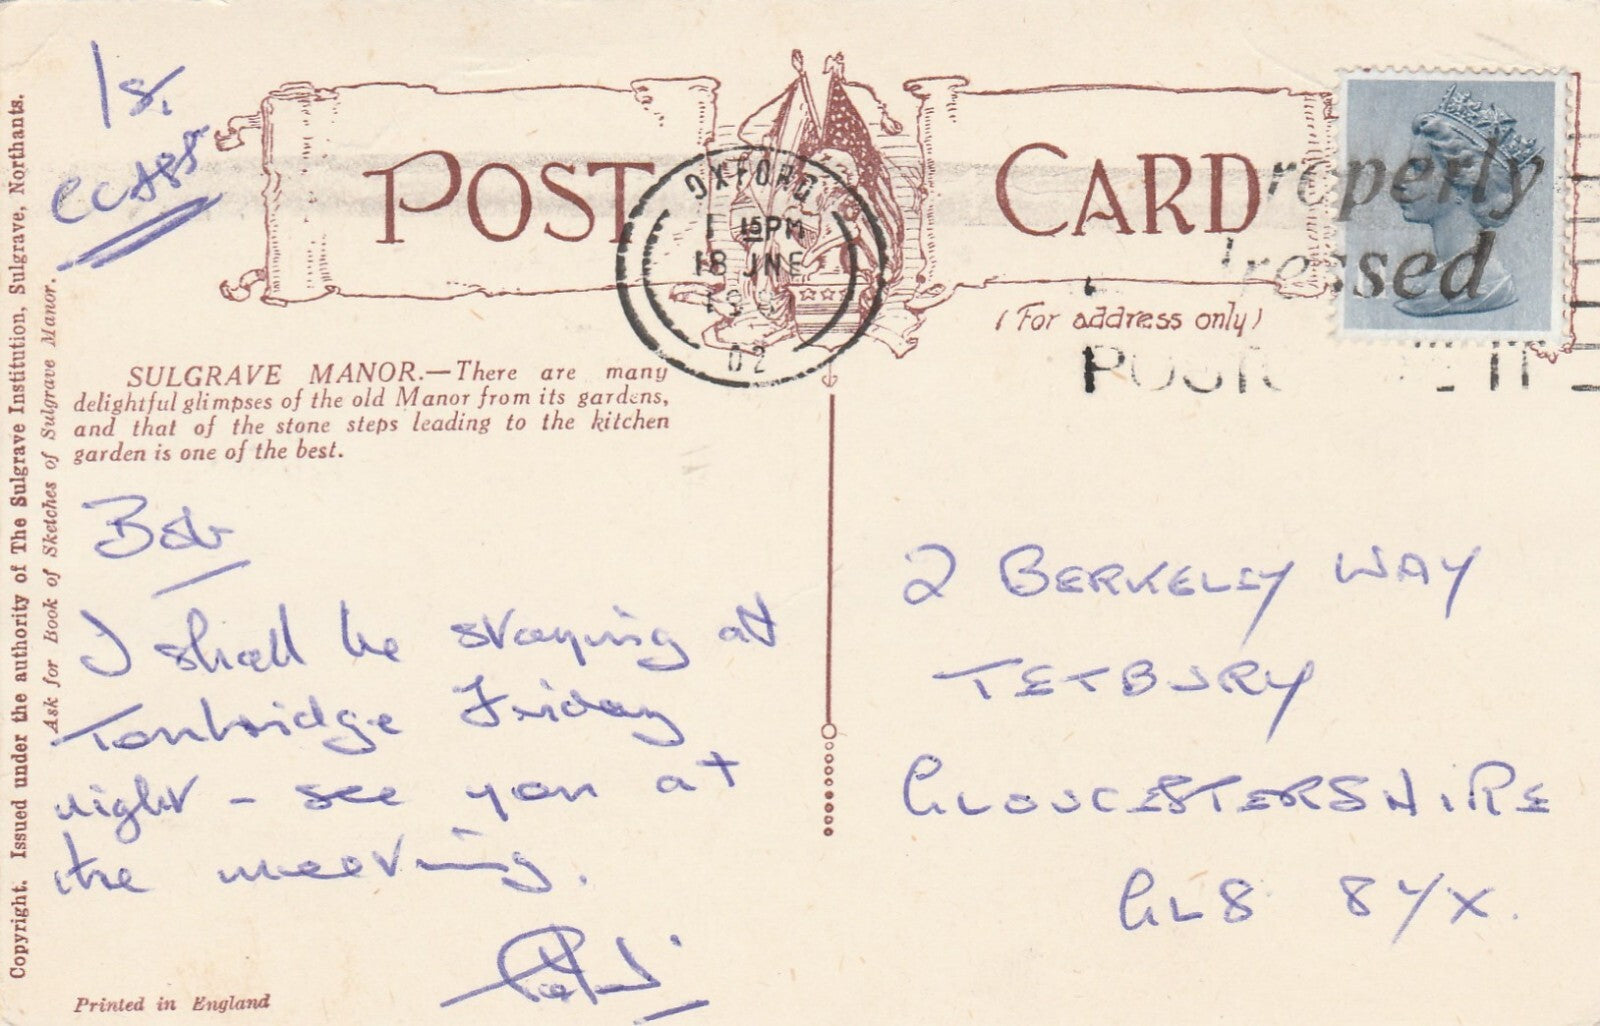 1st
CLASS
POST CARD
(For address only)
OXFORD
15PM
18 JNE
02
roperly
ressed
SULGRAVE MANOR.—There are many
delightful glimpses of the old Manor from its gardens,
and that of the stone steps leading to the kitchen
garden is one of the best.
Bob
I shall be staying at
Tonbridge Friday
night - see you at
the meeting.
2 BERKELEY WAY
TETBURY
GLOUCESTERSHIRE
GL8 8YX.
Printed in England
Copyright. Issued under the authority of The Sulgrave Institution, Sulgrave, Northants.
Ask for Book of Sketches of Sulgrave Manor.